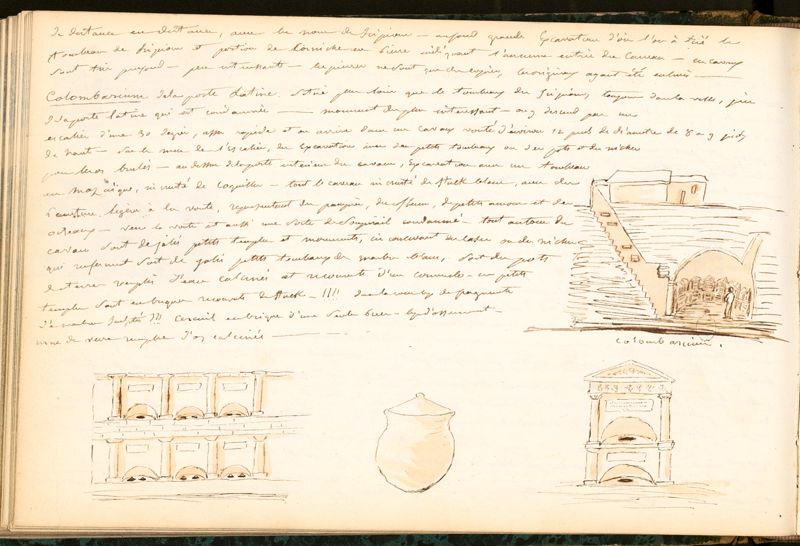 de distance en distance, avec le nom de Scipion — aujourd grande Excavation d'où l'on a tiré le
tombeau de Scipion et portion de Corniche en Pierre indiquant l'ancienne entrée du Caveau — en caveau
sont très profond — peu intéressants — les pierres ne sont que des copies, les originaux ayant été enlevés
Colombarium de la porte Latine. situé plus loin que le tombeau des Scipions, toujours dans la ville, près
de la porte latine qui est condamnée — monument des plus intéressant — on y descend par un
escalier d'une 30 degrés, assez rapide et on arrive dans un caveau vouté d'environ 12 pieds de diamètre de 8 a 9 pieds
de haut — sur le mur de l'Escalier, des Excavations avec des petits tombeaux ou des pots et des niches
pour les os brulés — au dessus de la porte intérieur du caveau, Excavation avec un tombeau
en mozaïque, incrusté de Coquilles — tout le caveau incrusté de Stuck blanc, avec des
Peintures legères à la voute, representant des pampres, des fleurs, de petits amours et des
oiseaux — vers la voute est aussi une sorte de Soupirail condamné — tout autour du
caveau sont de jolis petits temples et monuments, circonscrivant des cases ou des niches
qui renferment soit de jolis petits tombeaux de marbre blanc, soit des pots
de terre remplis d'os calcinés et recouverts d'un couvercle — ces petits
temples sont en briques recouverts de Stuck — !!!!
de marbre sculptés !!! Cercueil en brique d'une seule pièce —
urne de verre remplie d'os calcinés —
Colombarium.